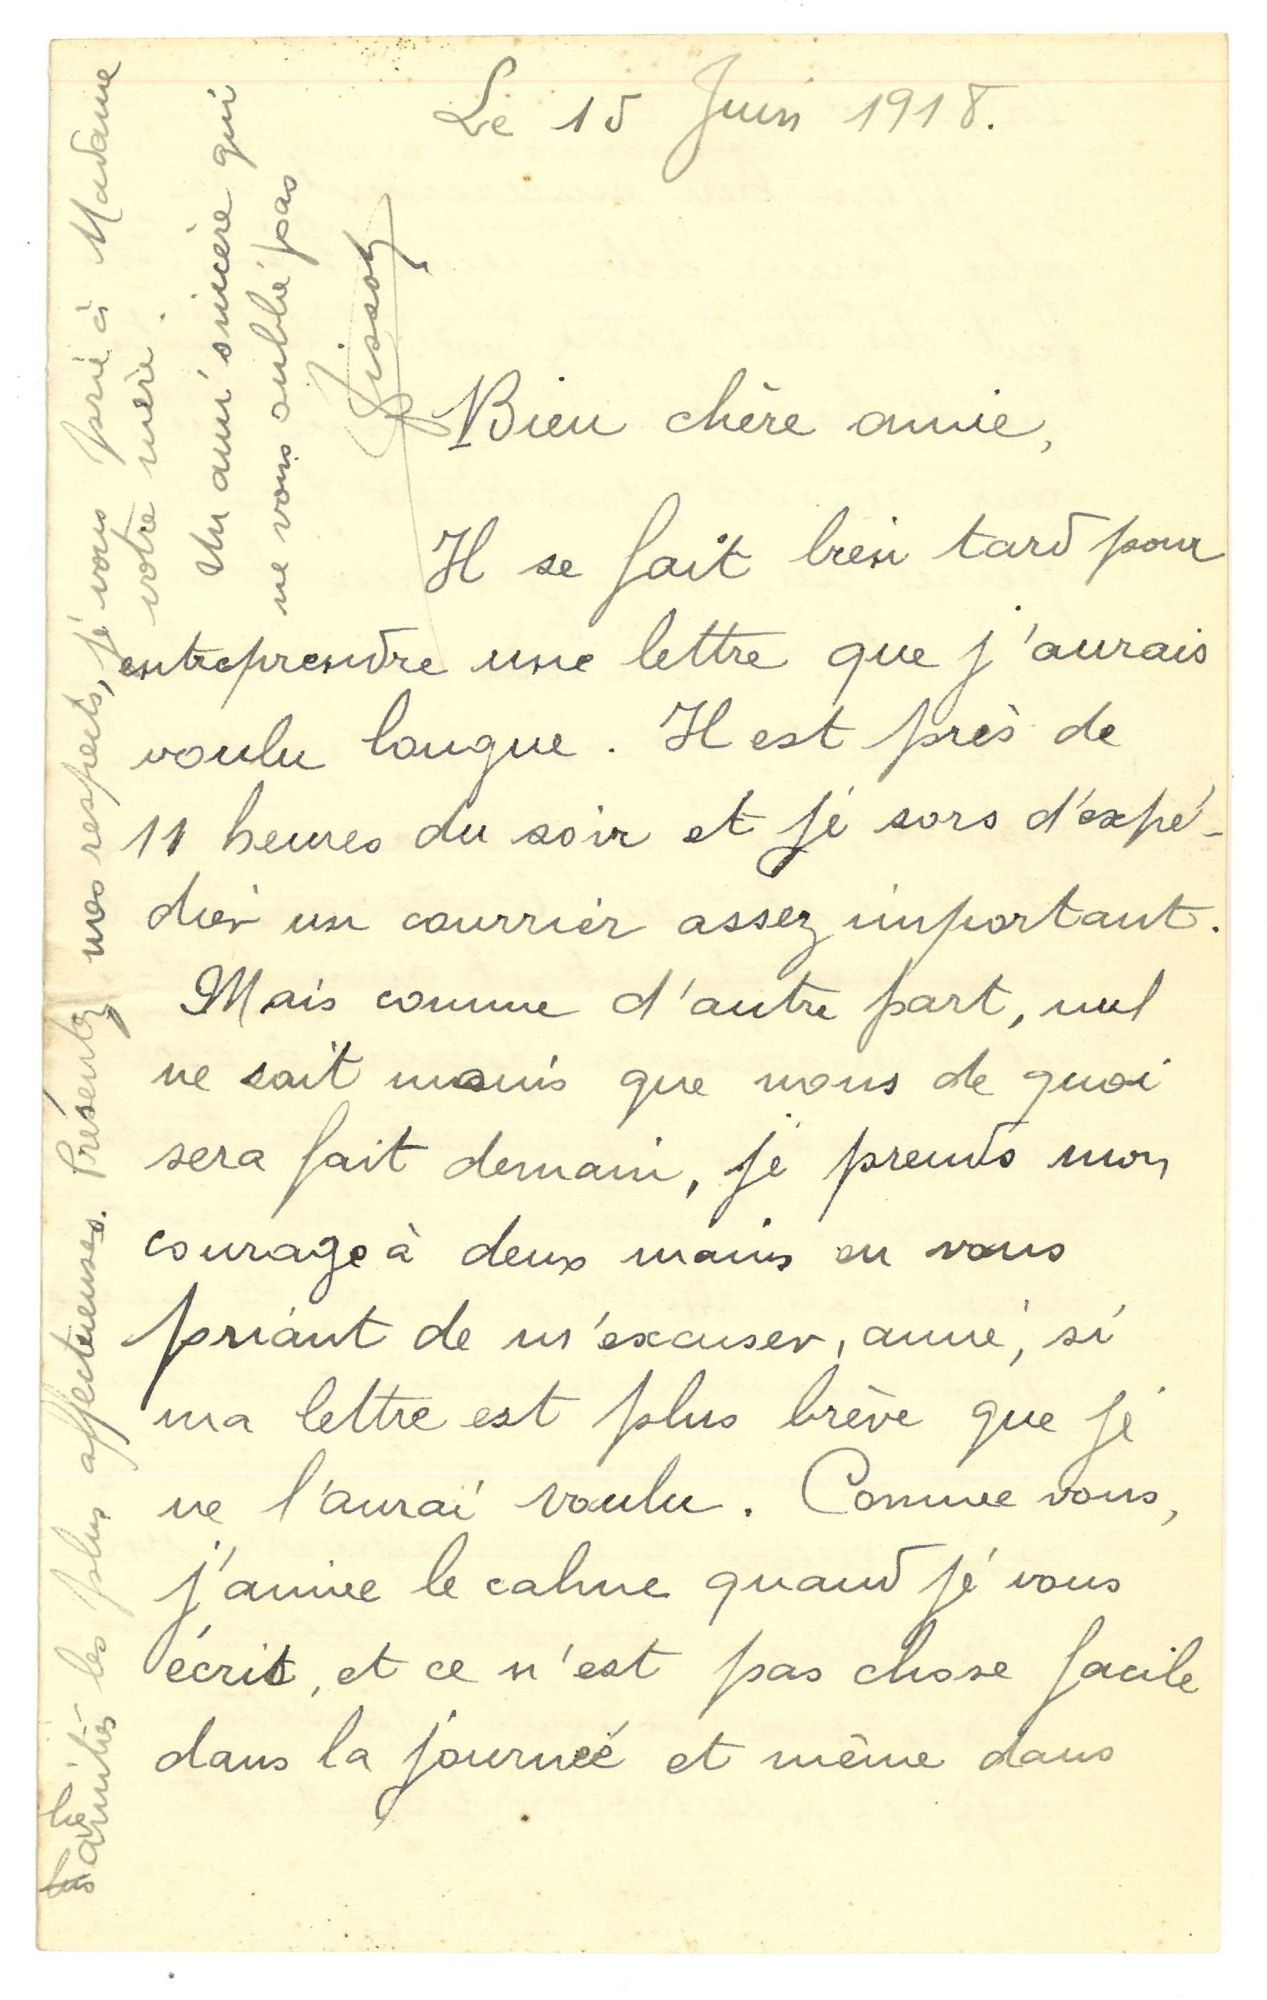 Le 15 Juin 1918.
Bien chère amie,
Il se fait bien tard pour
entreprendre une lettre que j'aurais
voulu longue. Il est près de
11 heures du soir et je sors d'expé-
dier un courrier assez important.
Mais comme d'autre part, nul
ne sait mains que nous de quoi
sera fait demain, je prends mon
courage à deux mains en vous
priant de m'excuser, amie, si
ma lettre est plus brève que je
ne l'aurai voulu. Comme vous,
j'aime le calme quand je vous
écris, et ce n'est pas chose facile
dans la journée et même dans
amitiés les plus affectueuses. Présentez mes respects, je vous prie à Madame
votre mère.
Un ami sincère qui
ne vous oublie pas